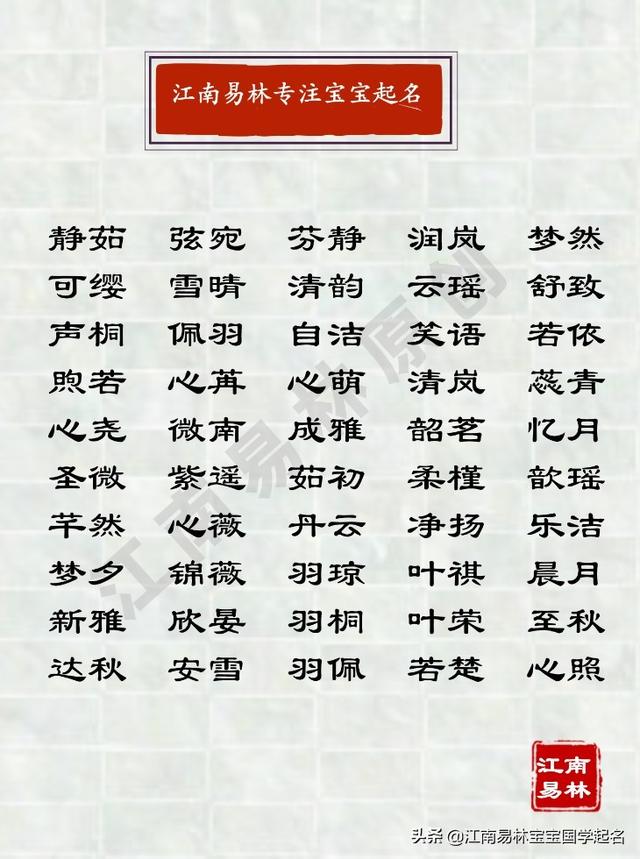 江南易林专注宝宝起名
静茹 弦宛 芬静 润岚 梦然
可缨 雪晴 清韵 云瑶 舒致
声桐 佩羽 自洁 笑语 若依
煦若 心苒 心萌 清岚 蕊青
心尧 微南 成雅 韶茗 忆月
圣微 紫遥 茹初 柔槿 歆瑶
芊然 心薇 丹云 净扬 乐洁
梦夕 锦薇 羽琼 叶祺 晨月
新雅 欣晏 羽桐 叶荣 至秋
达秋 安雪 羽佩 若楚 心照
江南易林原创
江南
易林
头条 @江南易林宝宝国学起名